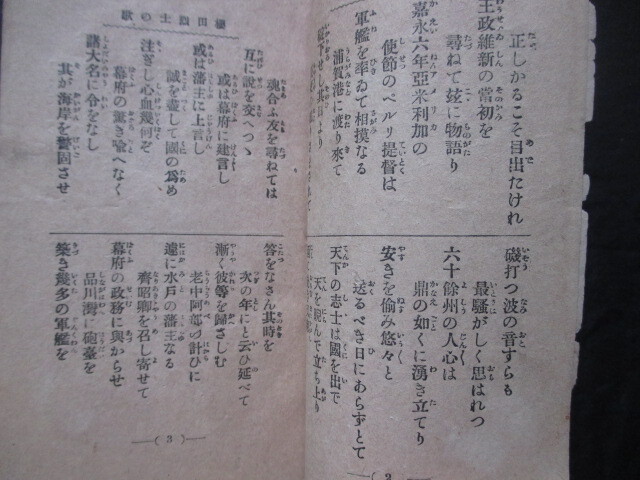 正しかるこそ目出たけれ
王政維新の當初を
尋ねて玆に物語り
嘉永六年亞米利加の
使節のペルリ提督は
軍艦を率ゐて相摸なる
浦賀港に渡り來て
磯打つ波の音すらも
最騷がしく思はれつ
六十餘州の人心は
鼎の如くに湧き立てり
安きを偸み悠々と
送るべき日にあらずとて
天下の志士は國を出で
天を睨んで立ち上り
士の歌
魂合ふ友を尋ねては
互に說を交へつゝ
或は幕府に建言し
或は藩主に上言し
誠を盡して國の爲め
注ぎし心血幾何ぞ
幕府の驚き喩へなく
諸大名に令をなし
其が海岸を警固させ
答をなさん其時を
次の年にと云ひ延べて
漸く彼等を歸さしむ
老中阿部の計ひに
遽に水戶の藩主なる
齊昭卿を召し寄せて
幕府の政務に與からせ
品川灣に砲臺を
築き幾多の軍艦を
(3)